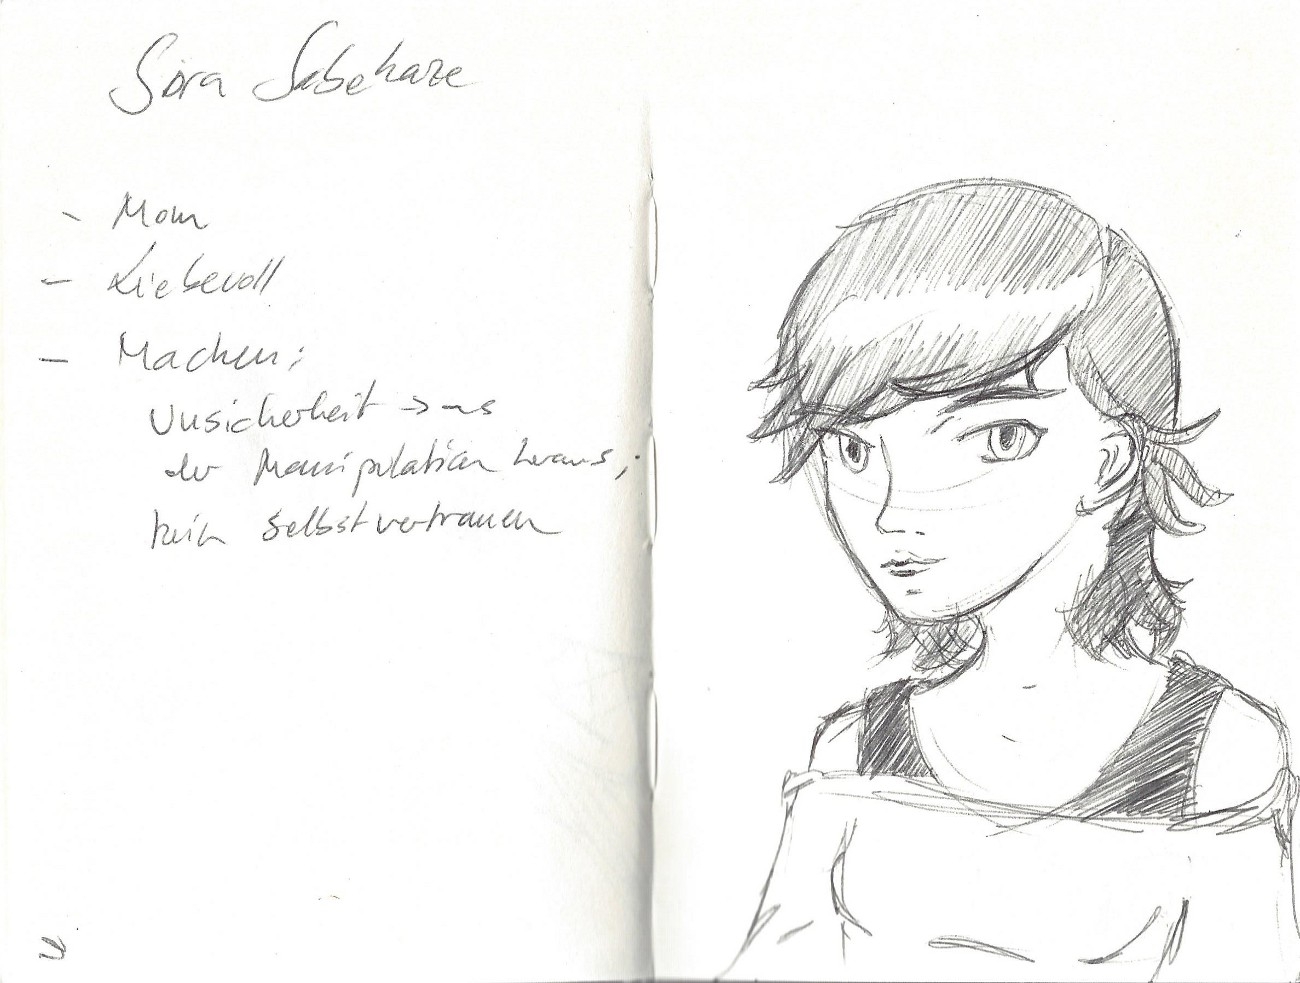 Sora Sabekaze
- Mom
- Liebevoll
- Machen:
Unsicherheit → aus
der Manipulation heraus,
kein Selbstvertrauen